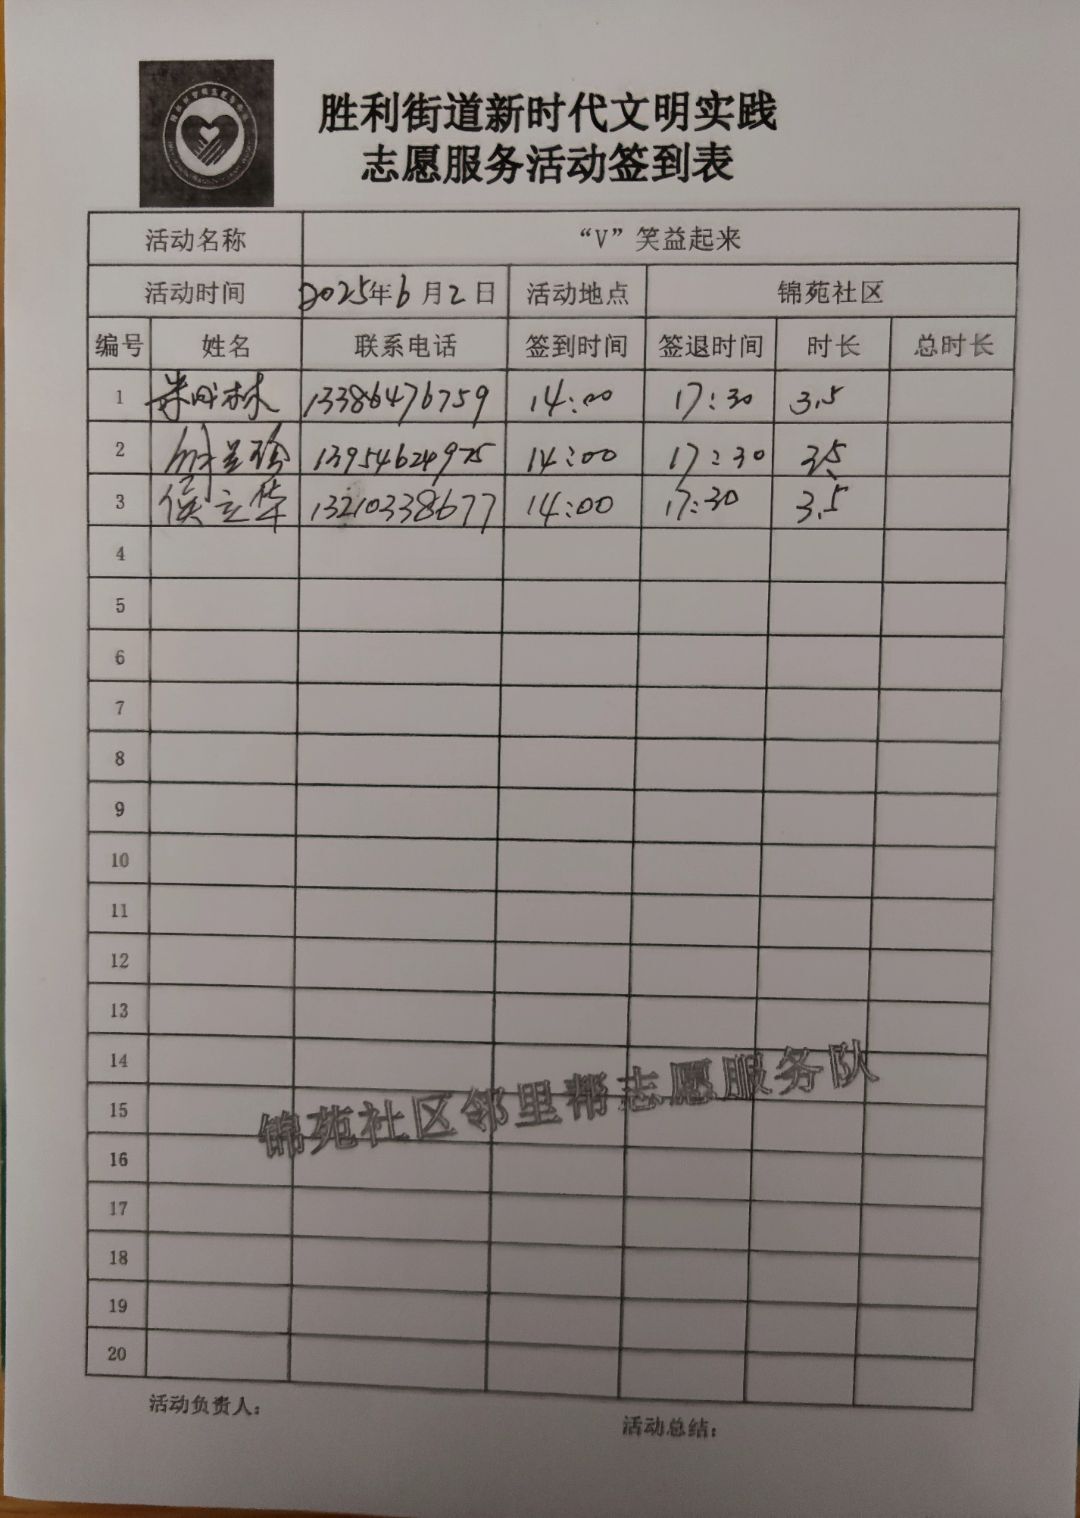 胜利街道新时代文明实践
志愿服务活动签到表
活动名称 “V”笑益起来
活动时间 2025年6月2日 活动地点 锦苑社区
编号 姓名 联系电话 签到时间 签退时间 时长 总时长
1 林 13386476759 14:00 17:30 3.5
2 13954624975 14:00 17:30 3.5
3 侯立华 13210338677 14:00 17:30 3.5
4
5
6
7
8
9
10
11
12
13
14
15
16
17
18
19
20
锦苑社区邻里帮志愿服务队
活动负责人：
活动总结：